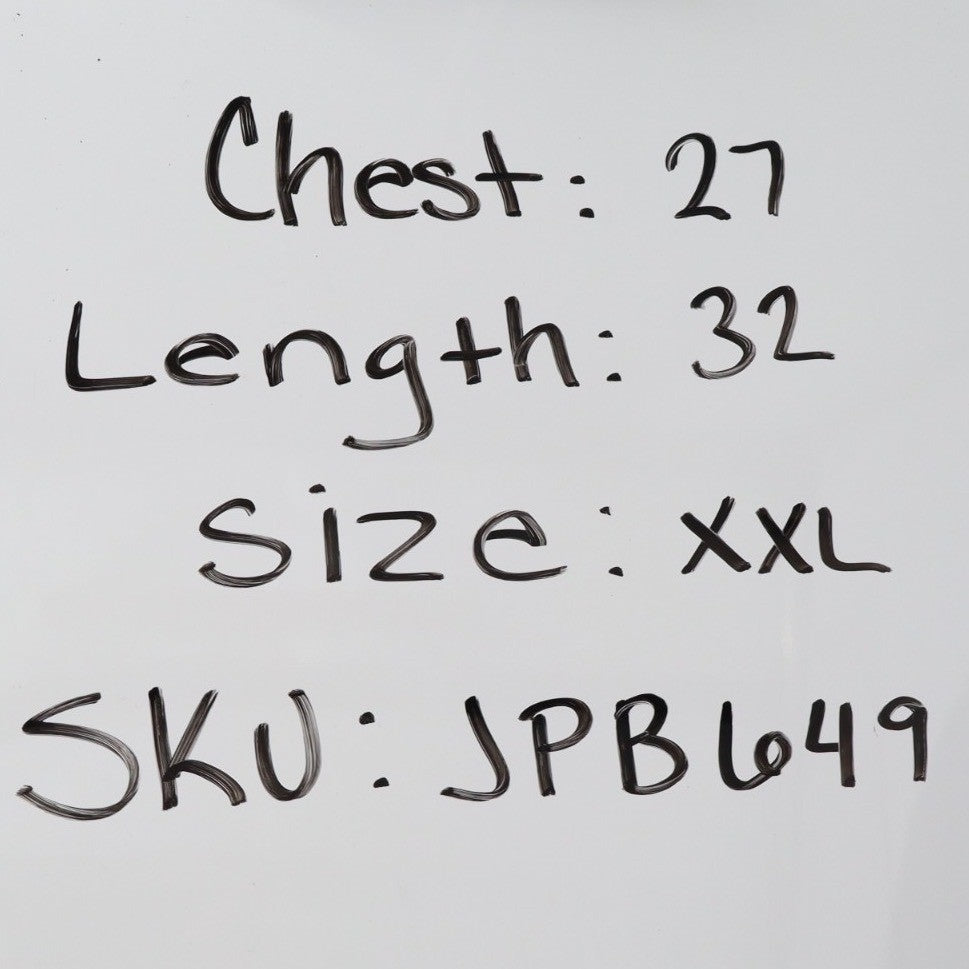 Chest: 27
Length: 32
Size: XXL
SKU: JPB649